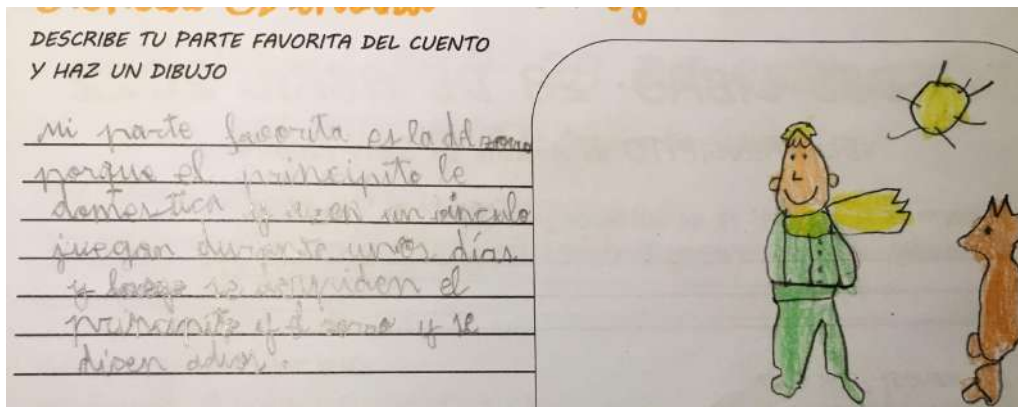 DESCRIBE TU PARTE FAVORITA DEL CUENTO
Y HAZ UN DIBUJO
mi parte favorita es la del zorro
porque el principito le
domestica y acen un vinculo
juegan durante unos días
y luego se despiden el
principito y el zorro y se
disen adios.